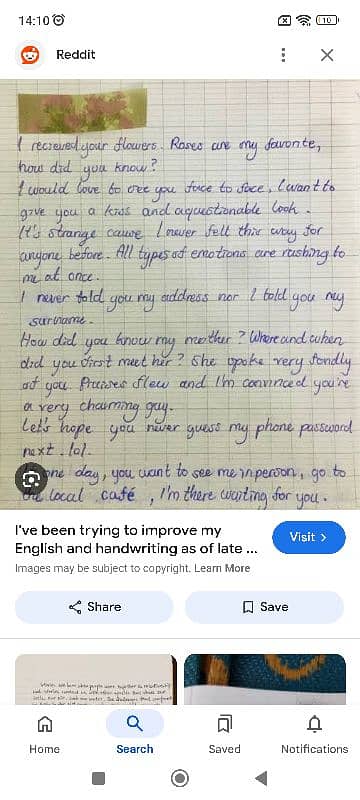 14:10
10
Reddit
I recieved your flowers. Roses are my favorite,
how did you know?
I would love to see you face to face, I want to
give you a kiss and a questionable look.
It's strange cause I never felt this way for
anyone before. All types of emotions are rushing to
me at once.
I never told you my address nor I told you my
surname.
How did you know my mother? Where and when
did you first meet her? She spoke very fondly
of you. Praises flew and I'm convinced you're
a very charming guy.
Let's hope you never guess my phone password
next. lol.
one day, you want to see me in person, go to
local café, I'm there waiting for you.
I've been trying to improve my
English and handwriting as of late ...
Visit >
Images may be subject to copyright. Learn More
Share
Save
Home
Search
Saved
Notifications